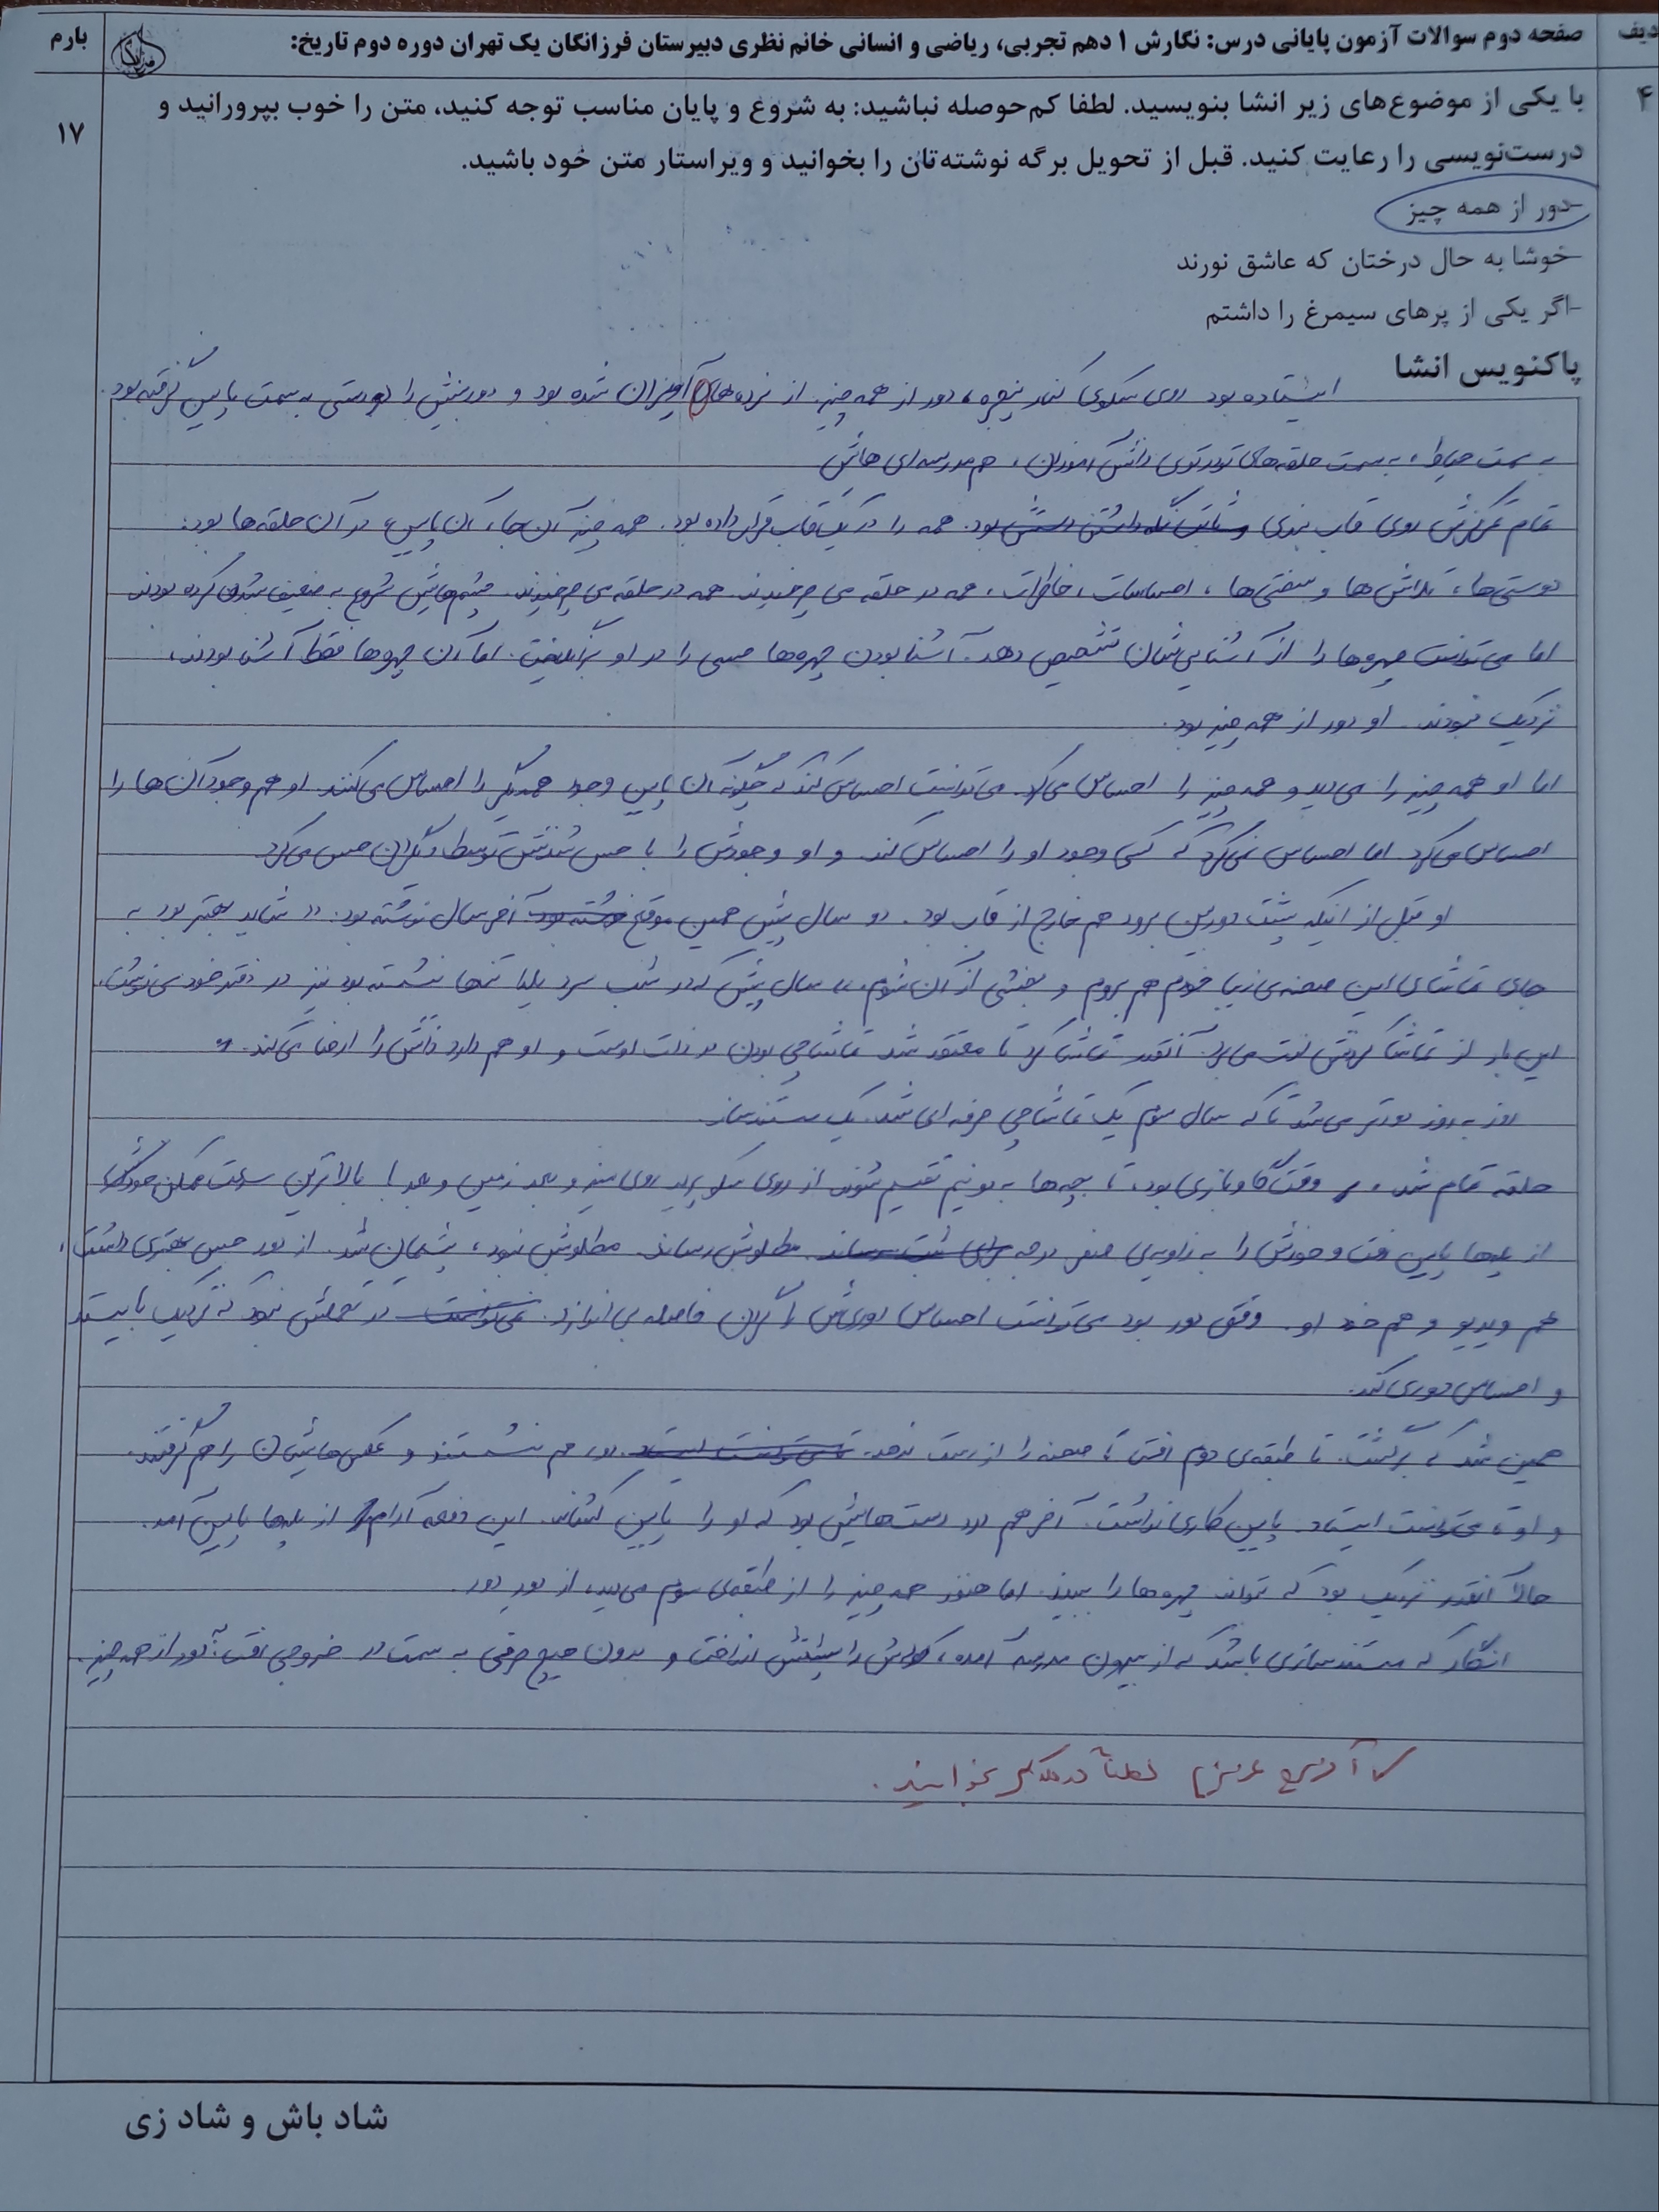 ردیف
صفحه دوم سوالات آزمون پایانی درس: نگارش ۱ دهم تجربی، ریاضی و انسانی خانم نظری دبیرستان فرزانگان یک تهران دوره دوم تاریخ:
بارم
۴
با یکی از موضوع‌های زیر انشا بنویسید. لطفا کم‌حوصله نباشید: به شروع و پایان مناسب توجه کنید، متن را خوب بپرورانید و
۱۷
درست‌نویسی را رعایت کنید. قبل از تحویل برگه نوشته‌تان را بخوانید و ویراستار متن خود باشید.
-دور از همه چیز
-خوشا به حال درختان که عاشق نورند
-اگر یکی از پرهای سیمرغ را داشتم
پاکنویس انشا
ایستاده بود روی سکوی کنار پنجره، دور از همه چیز. از نرده‌های آویزان شده بود و دوربینش را دو دستی به سمت پایین گرفته بود.
به سمت حیاط، به سمت حلقه‌های تودرتوی دانش‌آموزان، هم‌مدرسه‌ای هاش
تمام تمرکزش روی قاب بندی و ثابت نگه داشتن دستش بود. همه را در یک قاب قرار داده بود. همه چیز آن جا، آن پایین، در آن حلقه‌ها بود:
دوستی‌ها، تلاش‌ها و سختی‌ها، احساسات، خاطرات، همه در حلقه می چرخیدند. همه در حلقه می چرخیدند. چشم‌هایش شروع به ضعیف شدن کرده بودند
اما می‌توانست چهره‌ها را از آشنایی‌شان تشخیص دهد. آشنا بودن چهره‌ها حسی را در او برانگیخت. اما آن چهره‌ها فقط آشنا بودند،
نزدیک نبودند. او دور از همه چیز بود.
اما او همه چیز را می‌دید و همه چیز را احساس می‌کرد. می‌توانست احساس کند که چگونه آن پایین وجود همدیگر را احساس می‌کنند. او هم وجود آن‌ها را
احساس می‌کرد اما احساس نمی‌کرد که کسی وجود او را احساس کند و او وجودش را با حس شدنش توسط دیگران حس می‌کرد.
او قبل از اینکه پشت دوربین برود هم خارج از قاب بود. دو سال پیش همین موقع نوشته بود آخر سال نوشته بود: «شاید بهتر بود به
جای تماشای این صحنه‌ی زیبا خودم هم بروم و بخشی از آن شوم.» سال پیش که در شب سرد یلدا تنها نشسته بود نیز در دفتر خود می‌نوشت.
این بار از تماشا کردنش لذت می‌برد. آنقدر تماشا کرد تا معتقد شد تماشاچی بودن در ذات اوست و او هم دارد ذاتش را ارضا می‌کند.
روز به روز دورتر می‌شد تا که سال سوم یک تماشاچی حرفه‌ای شد. یک مستندساز.
حلقه تمام شد، وقت گاوبازی بود، تا بچه‌ها به دو تیم تقسیم شوند از روی سکو پرید روی میز و بعد زمین و بعد با بالاترین سرعت ممکن خودش
از پله‌ها پایین رفت و خودش را به زاویه‌ی صفر درجه برای ثبت رساند. مطلوبش رساند. مطلوبش نبود، پشیمان شد. از دور حس بهتری داشت،
هم ویدیو و هم خود او. وقتی دور بود می‌توانست احساس دوری‌اش را گردن فاصله بی‌اندازد. نمی‌توانست در تحملش نبود که نزدیک بایستد
و احساس دوری کند.
همین شد که برگشت. تا طبقه‌ی دوم رفت تا صحنه را از دست ندهد. دور هم نشستند و عکس‌هایشان را هم گرفتند.
و او می‌توانست ایستاد. پایین کاری نداشت. آخر هم درد دست‌هایش بود که او را پایین کشاند. این دفعه آرام از پله‌ها پایین آمد.
حالا آنقدر نزدیک بود که بتواند چهره‌ها را ببیند. اما هنوز همه چیز را از طبقه‌ی سوم می‌دید، از دور دور.
انگار که مستندسازی باشد که از بیرون مدرسه آمده، کوله‌ش را پشتش انداخت و بدون هیچ حرفی به سمت در خروجی رفت؛ دور از همه چیز.
عزیزم لطفاً بخوانید.
شاد باش و شاد زی